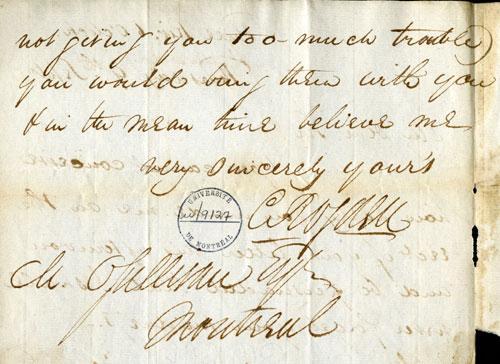 not giving you too much trouble
you would bring them with you
& in the mean time believe me
very sincerely your's
UNIVERSITÉ
DE MONTRÉAL
Montreal